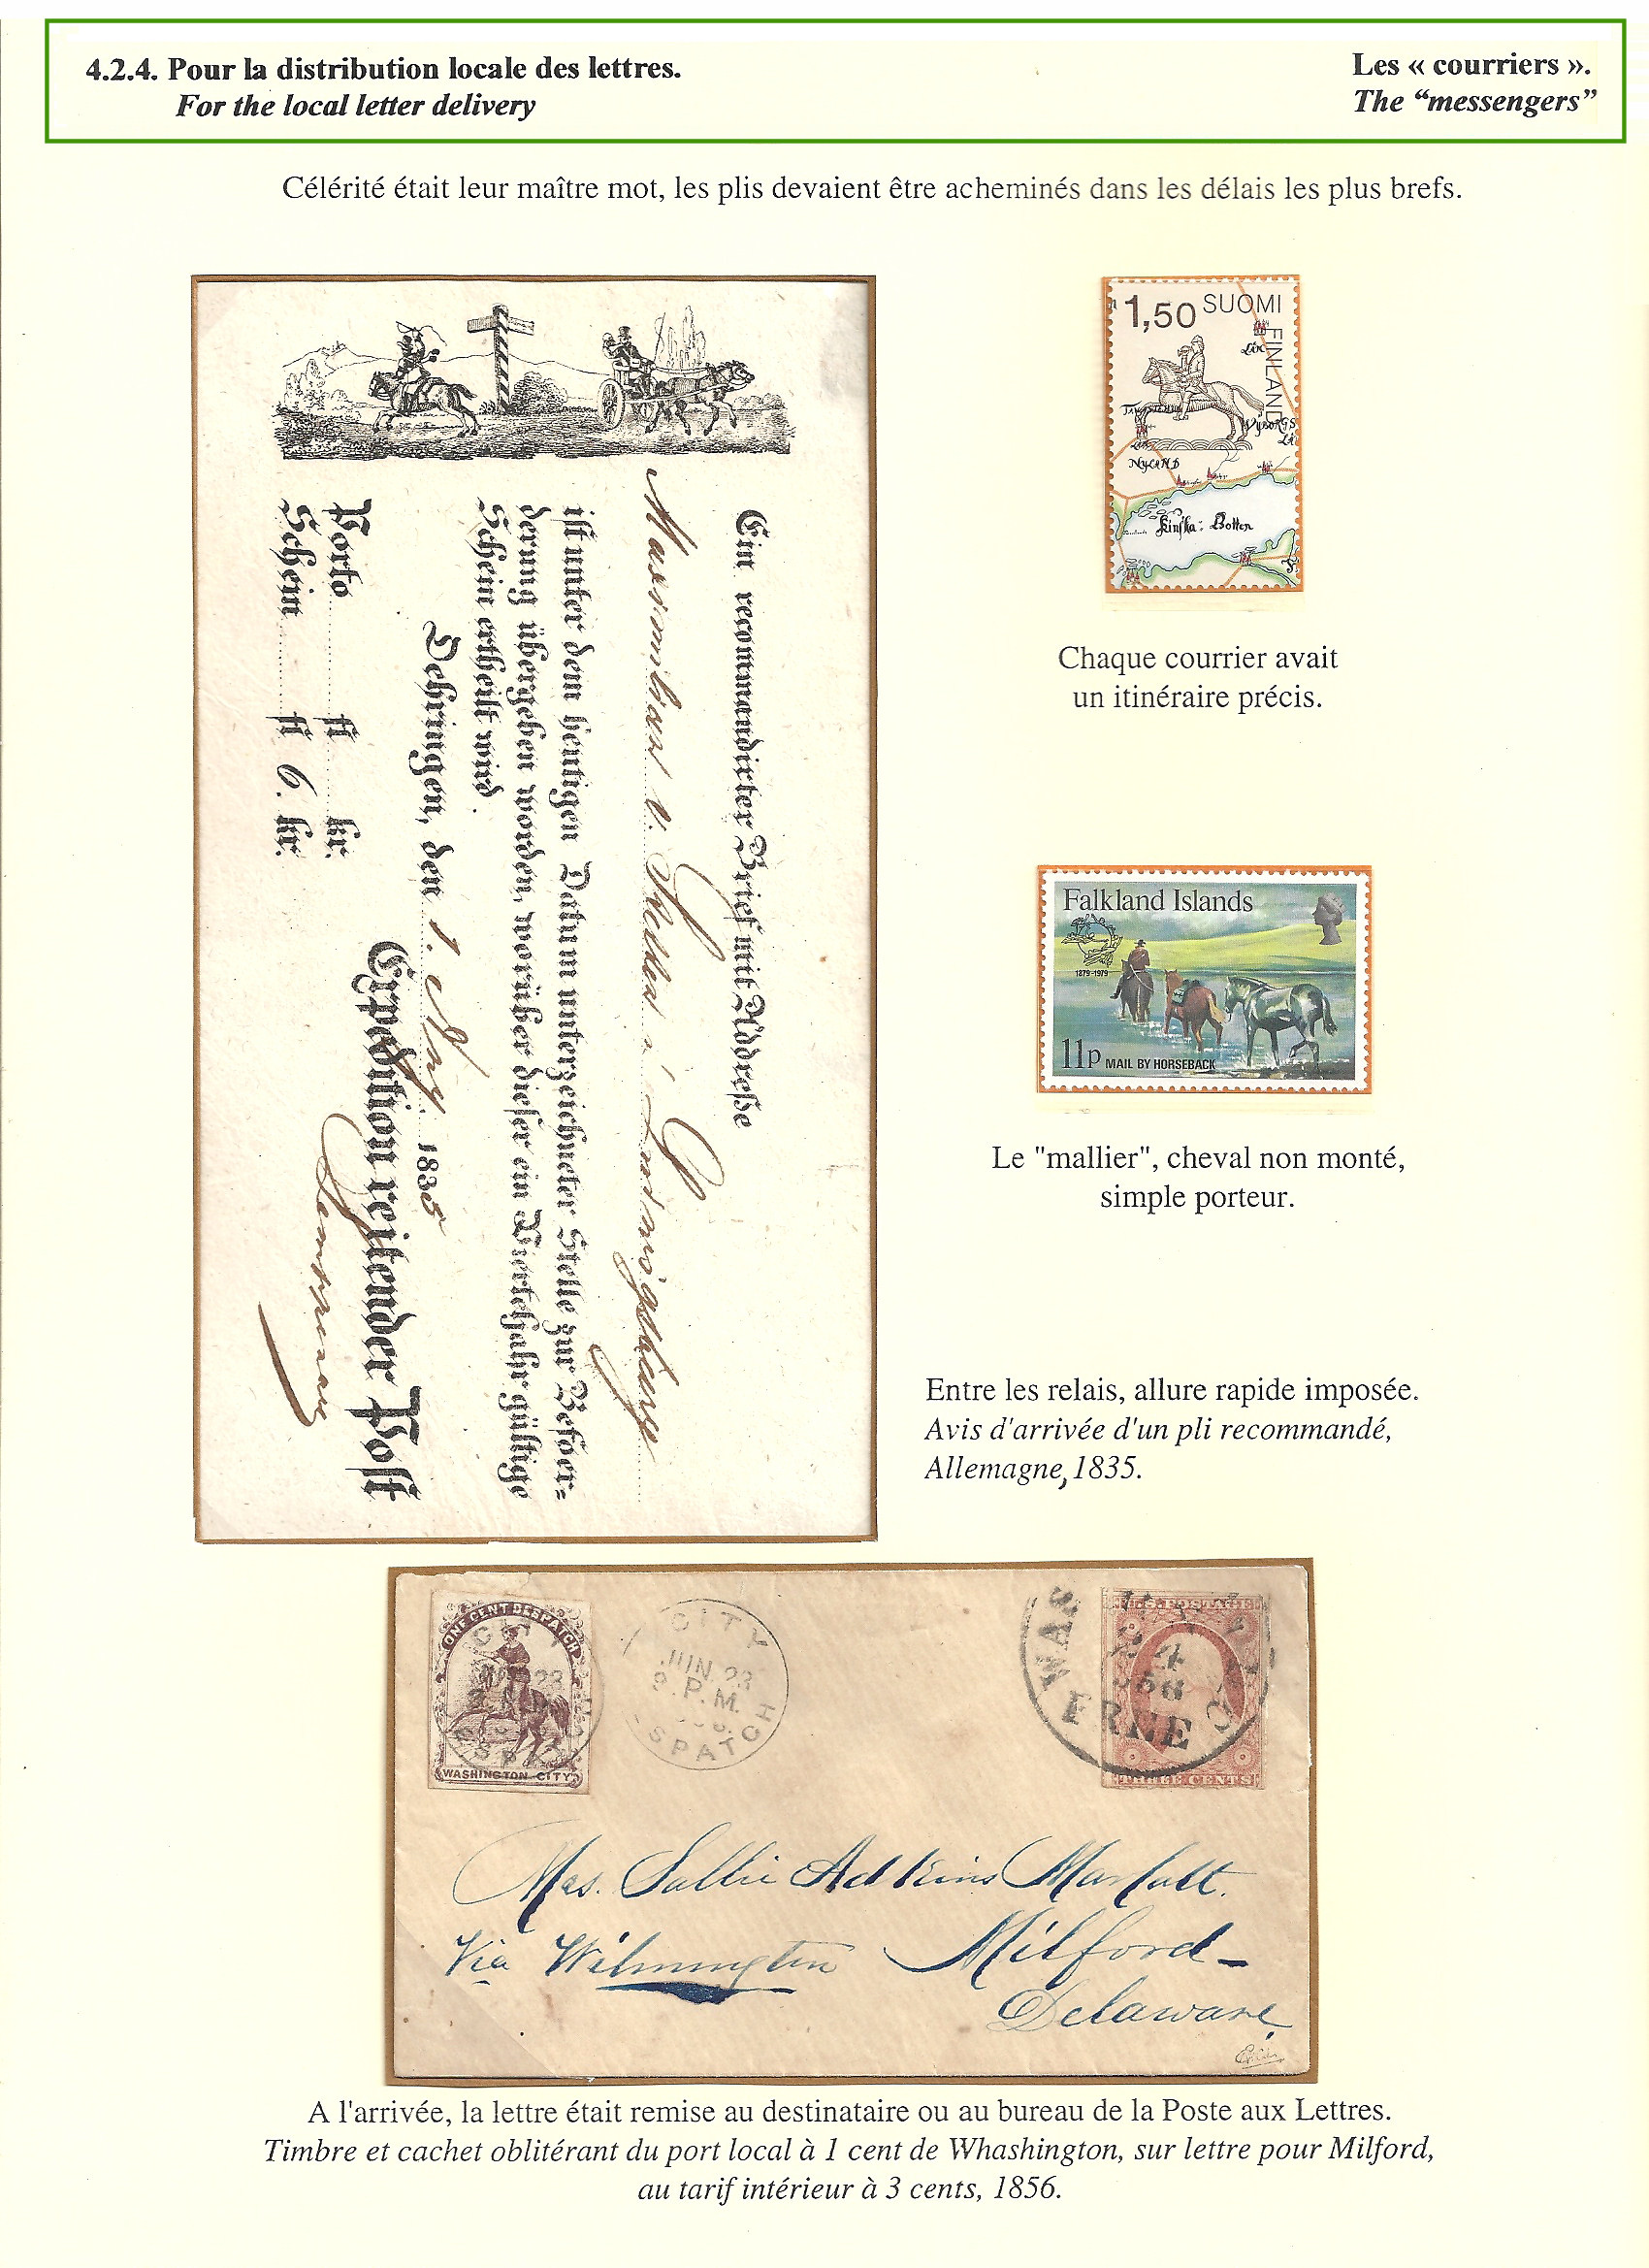 4.2.4. Pour la distribution locale des lettres.
For the local letter delivery
Les « courriers ».
The “messengers”
Célérité était leur maître mot, les plis devaient être acheminés dans les délais les plus brefs.
Ein recommandirter Brief mit Addresse
ist unter dem heutigen Datum unterzeichneter Stelle zur Beför-
derung übergeben worden, worüber dieser ein Vierteljahr gültige
Schein ertheilt wird.
Oehringen, den 1. May 1835
Expedition reitender Post
Porto fl kr.
Schein fl 6. kr.
1,50 SUOMI
FINLAND
NyLAND
Chaque courrier avait
un itinéraire précis.
Falkland Islands
1879-1979
11p MAIL BY HORSEBACK
Le "mallier", cheval non monté,
simple porteur.
Entre les relais, allure rapide imposée.
Avis d'arrivée d'un pli recommandé,
Allemagne, 1835.
ONE CENT DESPATCH
WASHINGTON CITY
CITY
JUN 23
P.M.
SPATCH
U.S. POSTAGE
THREE CENTS
WAS
24
FREE
Mrs. Sallie Adkins
Via Wilmington Milford-
Delaware
A l'arrivée, la lettre était remise au destinataire ou au bureau de la Poste aux Lettres.
Timbre et cachet oblitérant du port local à 1 cent de Whashington, sur lettre pour Milford,
au tarif intérieur à 3 cents, 1856.